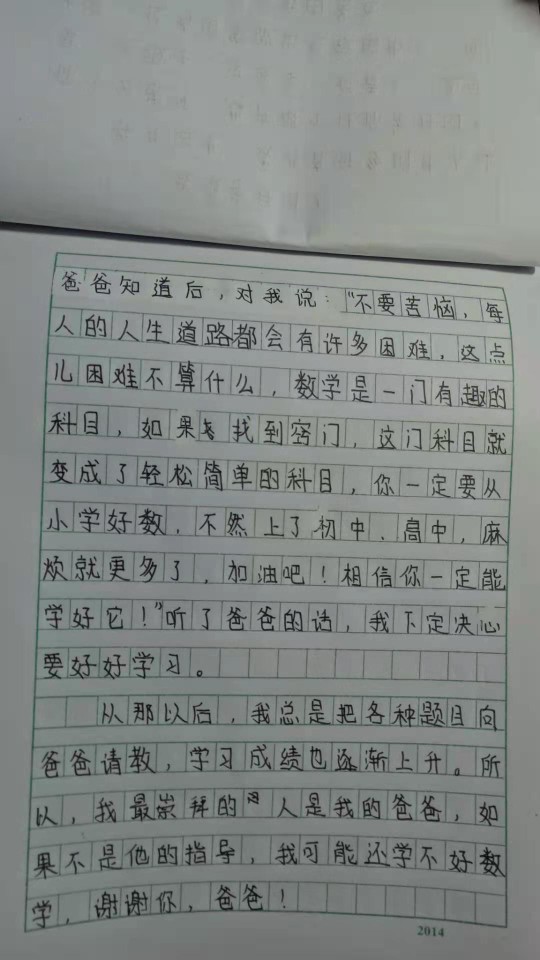 爸爸知道后，对我说：“不要苦恼，每
人的人生道路都会有许多困难，这点
儿困难不算什么，数学是一门有趣的
科目，如果找到窍门，这门科目就
变成了轻松简单的科目，你一定要从
小学好数，不然上了初中、高中，麻
烦就更多了，加油吧！相信你一定能
学好它！”听了爸爸的话，我下定决心
要好好学习。
从那以后，我总是把各种题目向
爸爸请教，学习成绩也逐渐上升。所
以，我最崇拜的人是我的爸爸，如
果不是他的指导，我可能还学不好数
学，谢谢你，爸爸！
2014